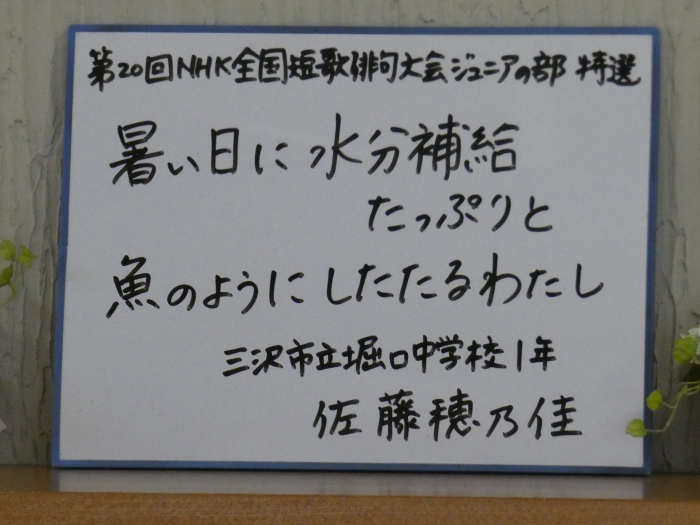 第20回NHK全国短歌俳句大会ジュニアの部 特選
暑い日に水分補給
たっぷりと
魚のようにしたたるわたし
三沢市立堀口中学校1年
佐藤穂乃佳